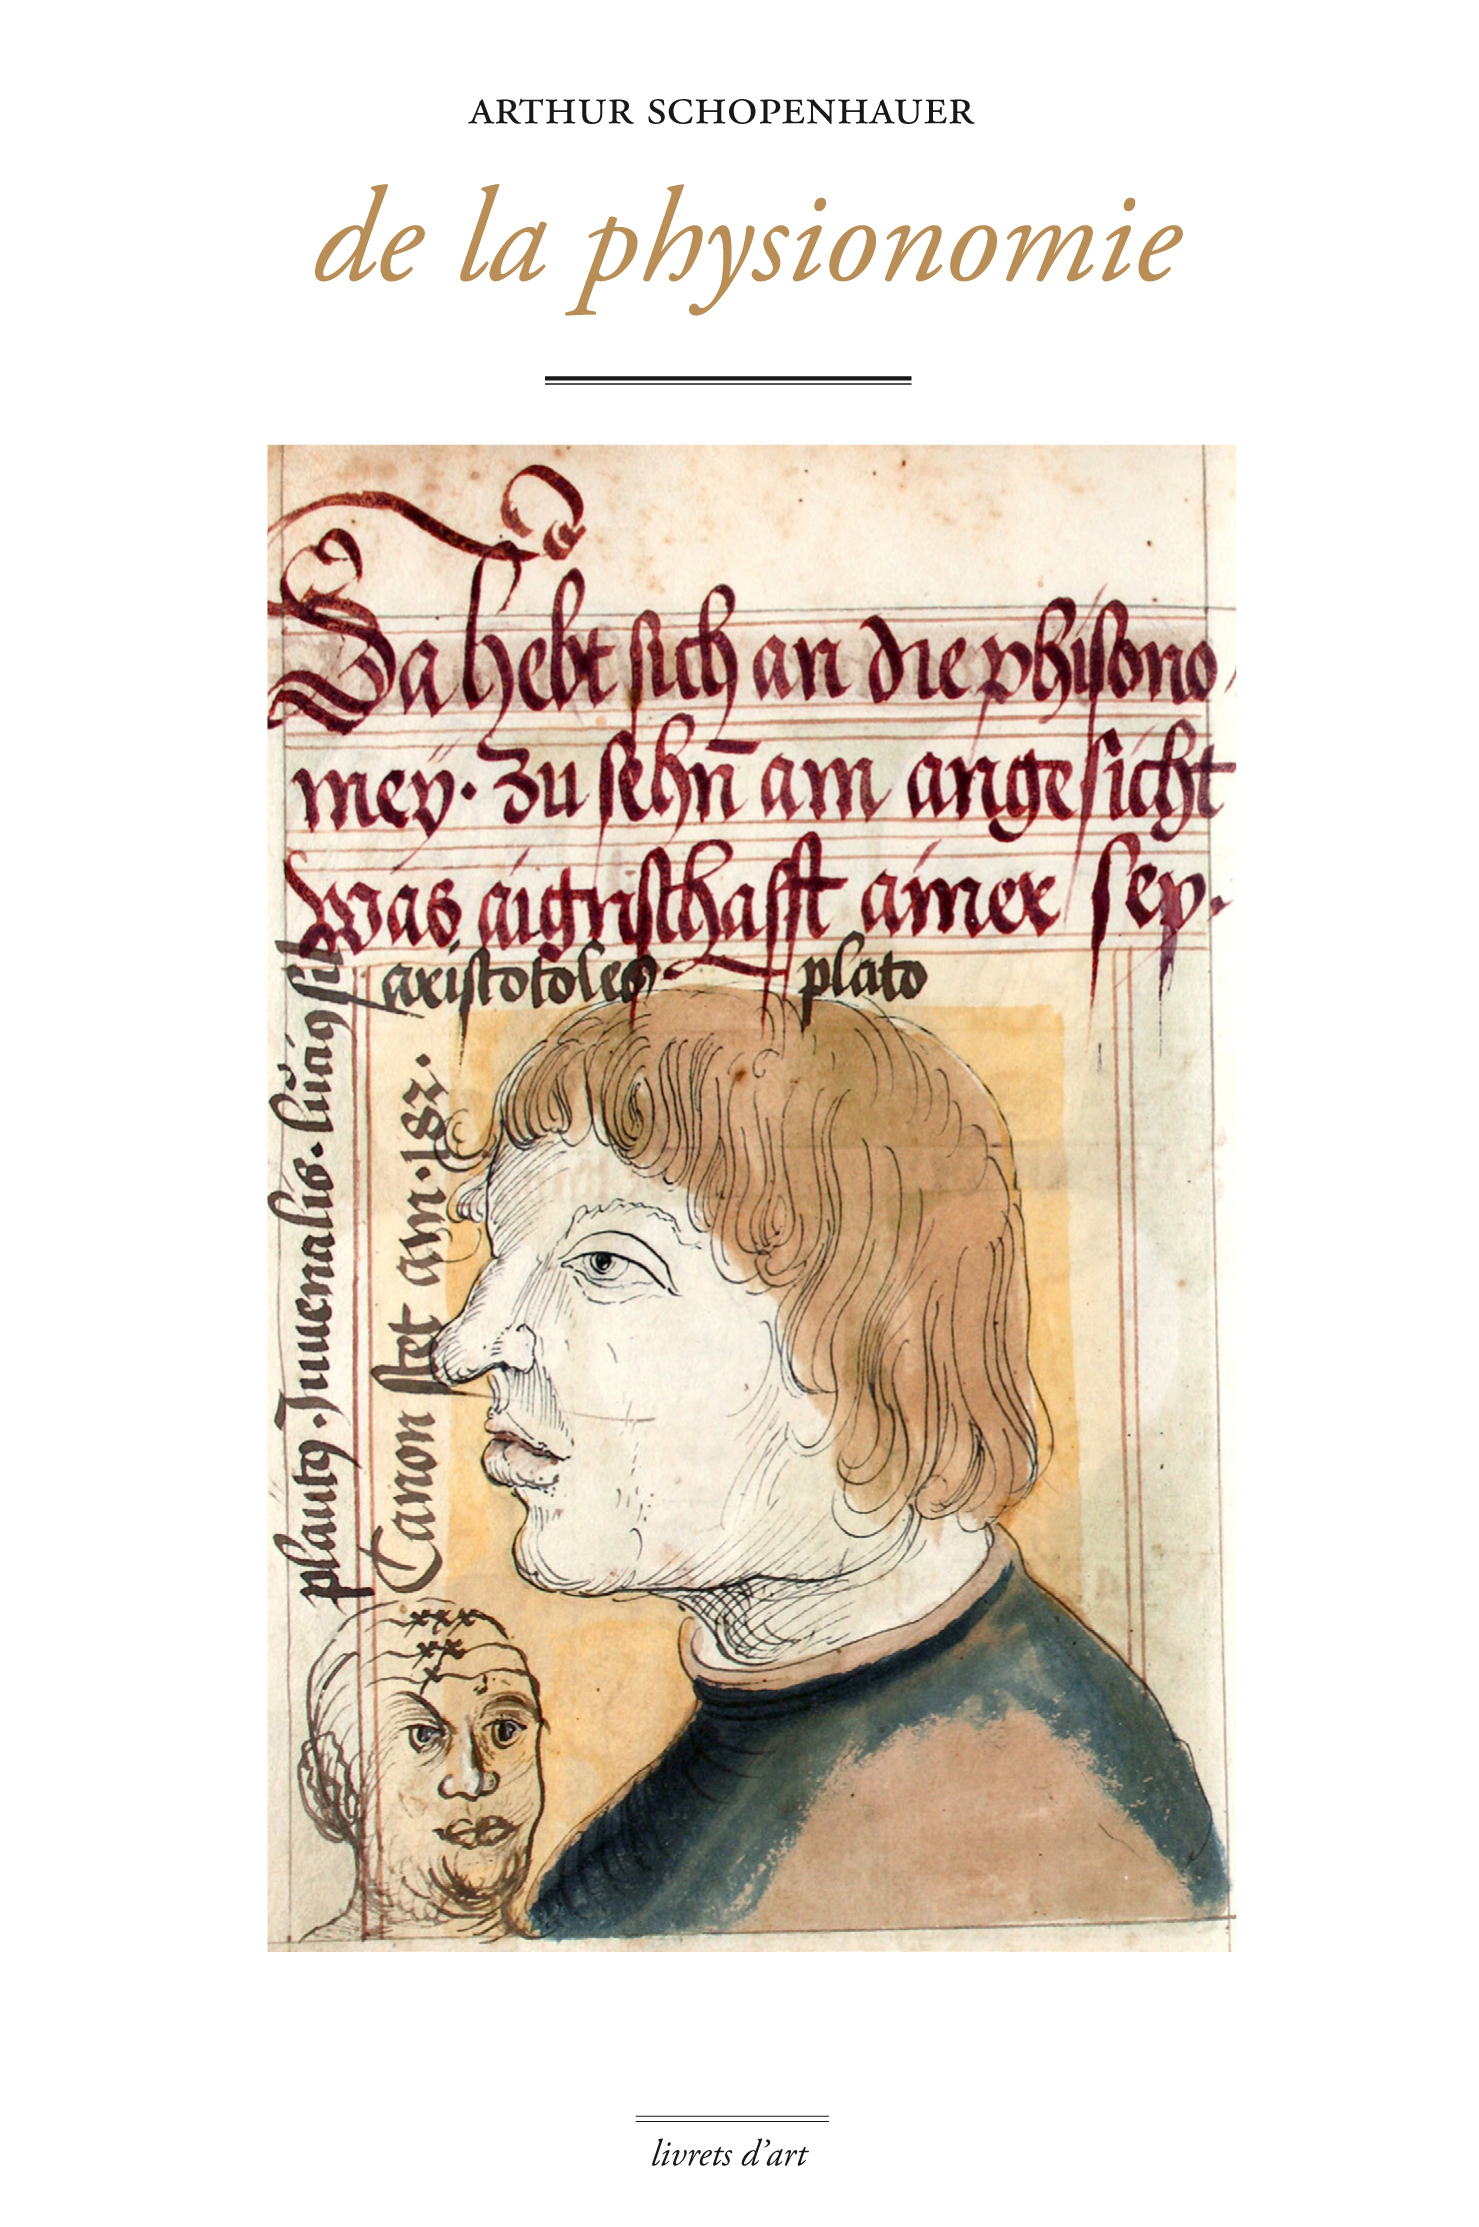 ARTHUR SCHOPENHAUER
de la physionomie
Da hebt sich an die phisono
meÿ. zu sehn̄ am angesicht
was aignschafft ainer seÿ.
aristotoles plato
plautꝯ. Juuenalis.
Canon stet am. 182.
livrets d'art